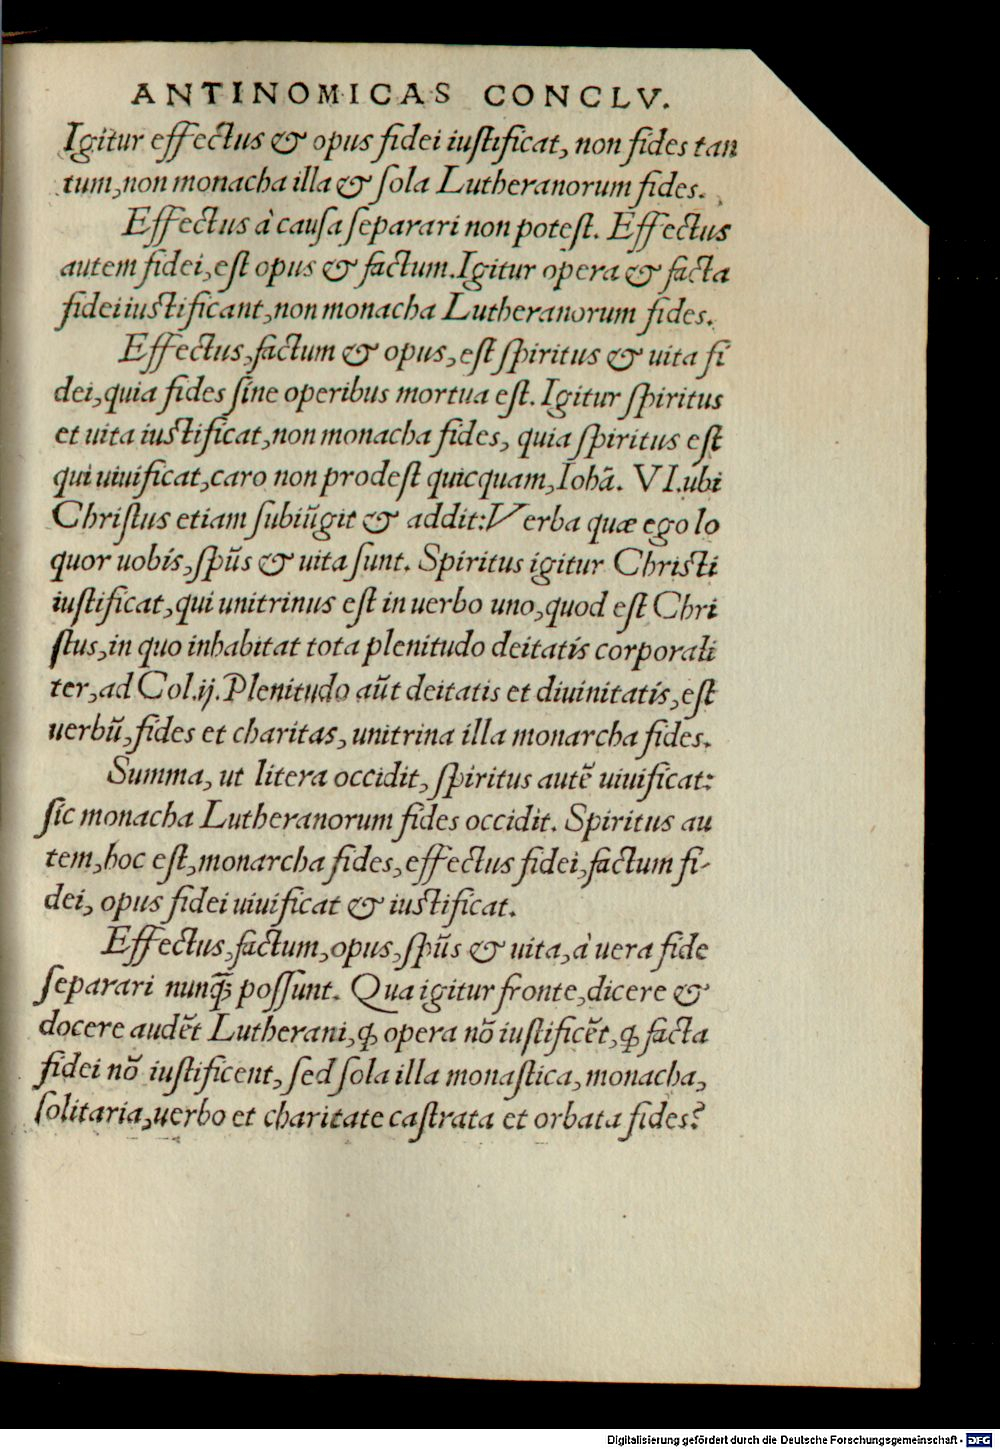 ANTINOMICAS CONCLV.
Igitur effectus & opus fidei iuſtificat, non fides tan
tum, non monacha illa & ſola Lutheranorum fides.
Effectus à cauſa ſeparari non poteſt. Effectus
autem fidei, eſt opus & factum. Igitur opera & facta
fidei iuſtificant, non monacha Lutheranorum fides.
Effectus, factum & opus, eſt ſpiritus & uita fi
dei, quia fides ſine operibus mortua eſt. Igitur ſpiritus
et uita iuſtificat, non monacha fides, quia ſpiritus eſt
qui uiuificat, caro non prodeſt quicquam, Iohā. VI. ubi
Chriſtus etiam ſubiūgit & addit: Verba quæ ego lo
quor uobis, ſpūs & uita ſunt. Spiritus igitur Chriſti
iuſtificat, qui unitrinus eſt in uerbo uno, quod eſt Chri
ſtus, in quo inhabitat tota plenitudo deitatis corporali
ter, ad Col. ij. Plenitudo aūt deitatis et diuinitatis, eſt
uerbū, fides et charitas, unitrina illa monarcha fides.
Summa, ut litera occidit, ſpiritus autē uiuificat:
ſic monacha Lutheranorum fides occidit. Spiritus au
tem, hoc eſt, monarcha fides, effectus fidei, factum fi-
dei, opus fidei uiuificat & iuſtificat.
Effectus, factum, opus, ſpūs & uita, à uera fide
ſeparari nunꝗ̃ poſſunt. Qua igitur fronte, dicere &
docere audēt Lutherani, ꝙ opera nō iuſtificēt, ꝙ facta
fidei nō iuſtificent, ſed ſola illa monaſtica, monacha,
ſolitaria, uerbo et charitate caſtrata et orbata fides?
Digitalisierung gefördert durch die Deutsche Forschungsgemeinschaft - DFG